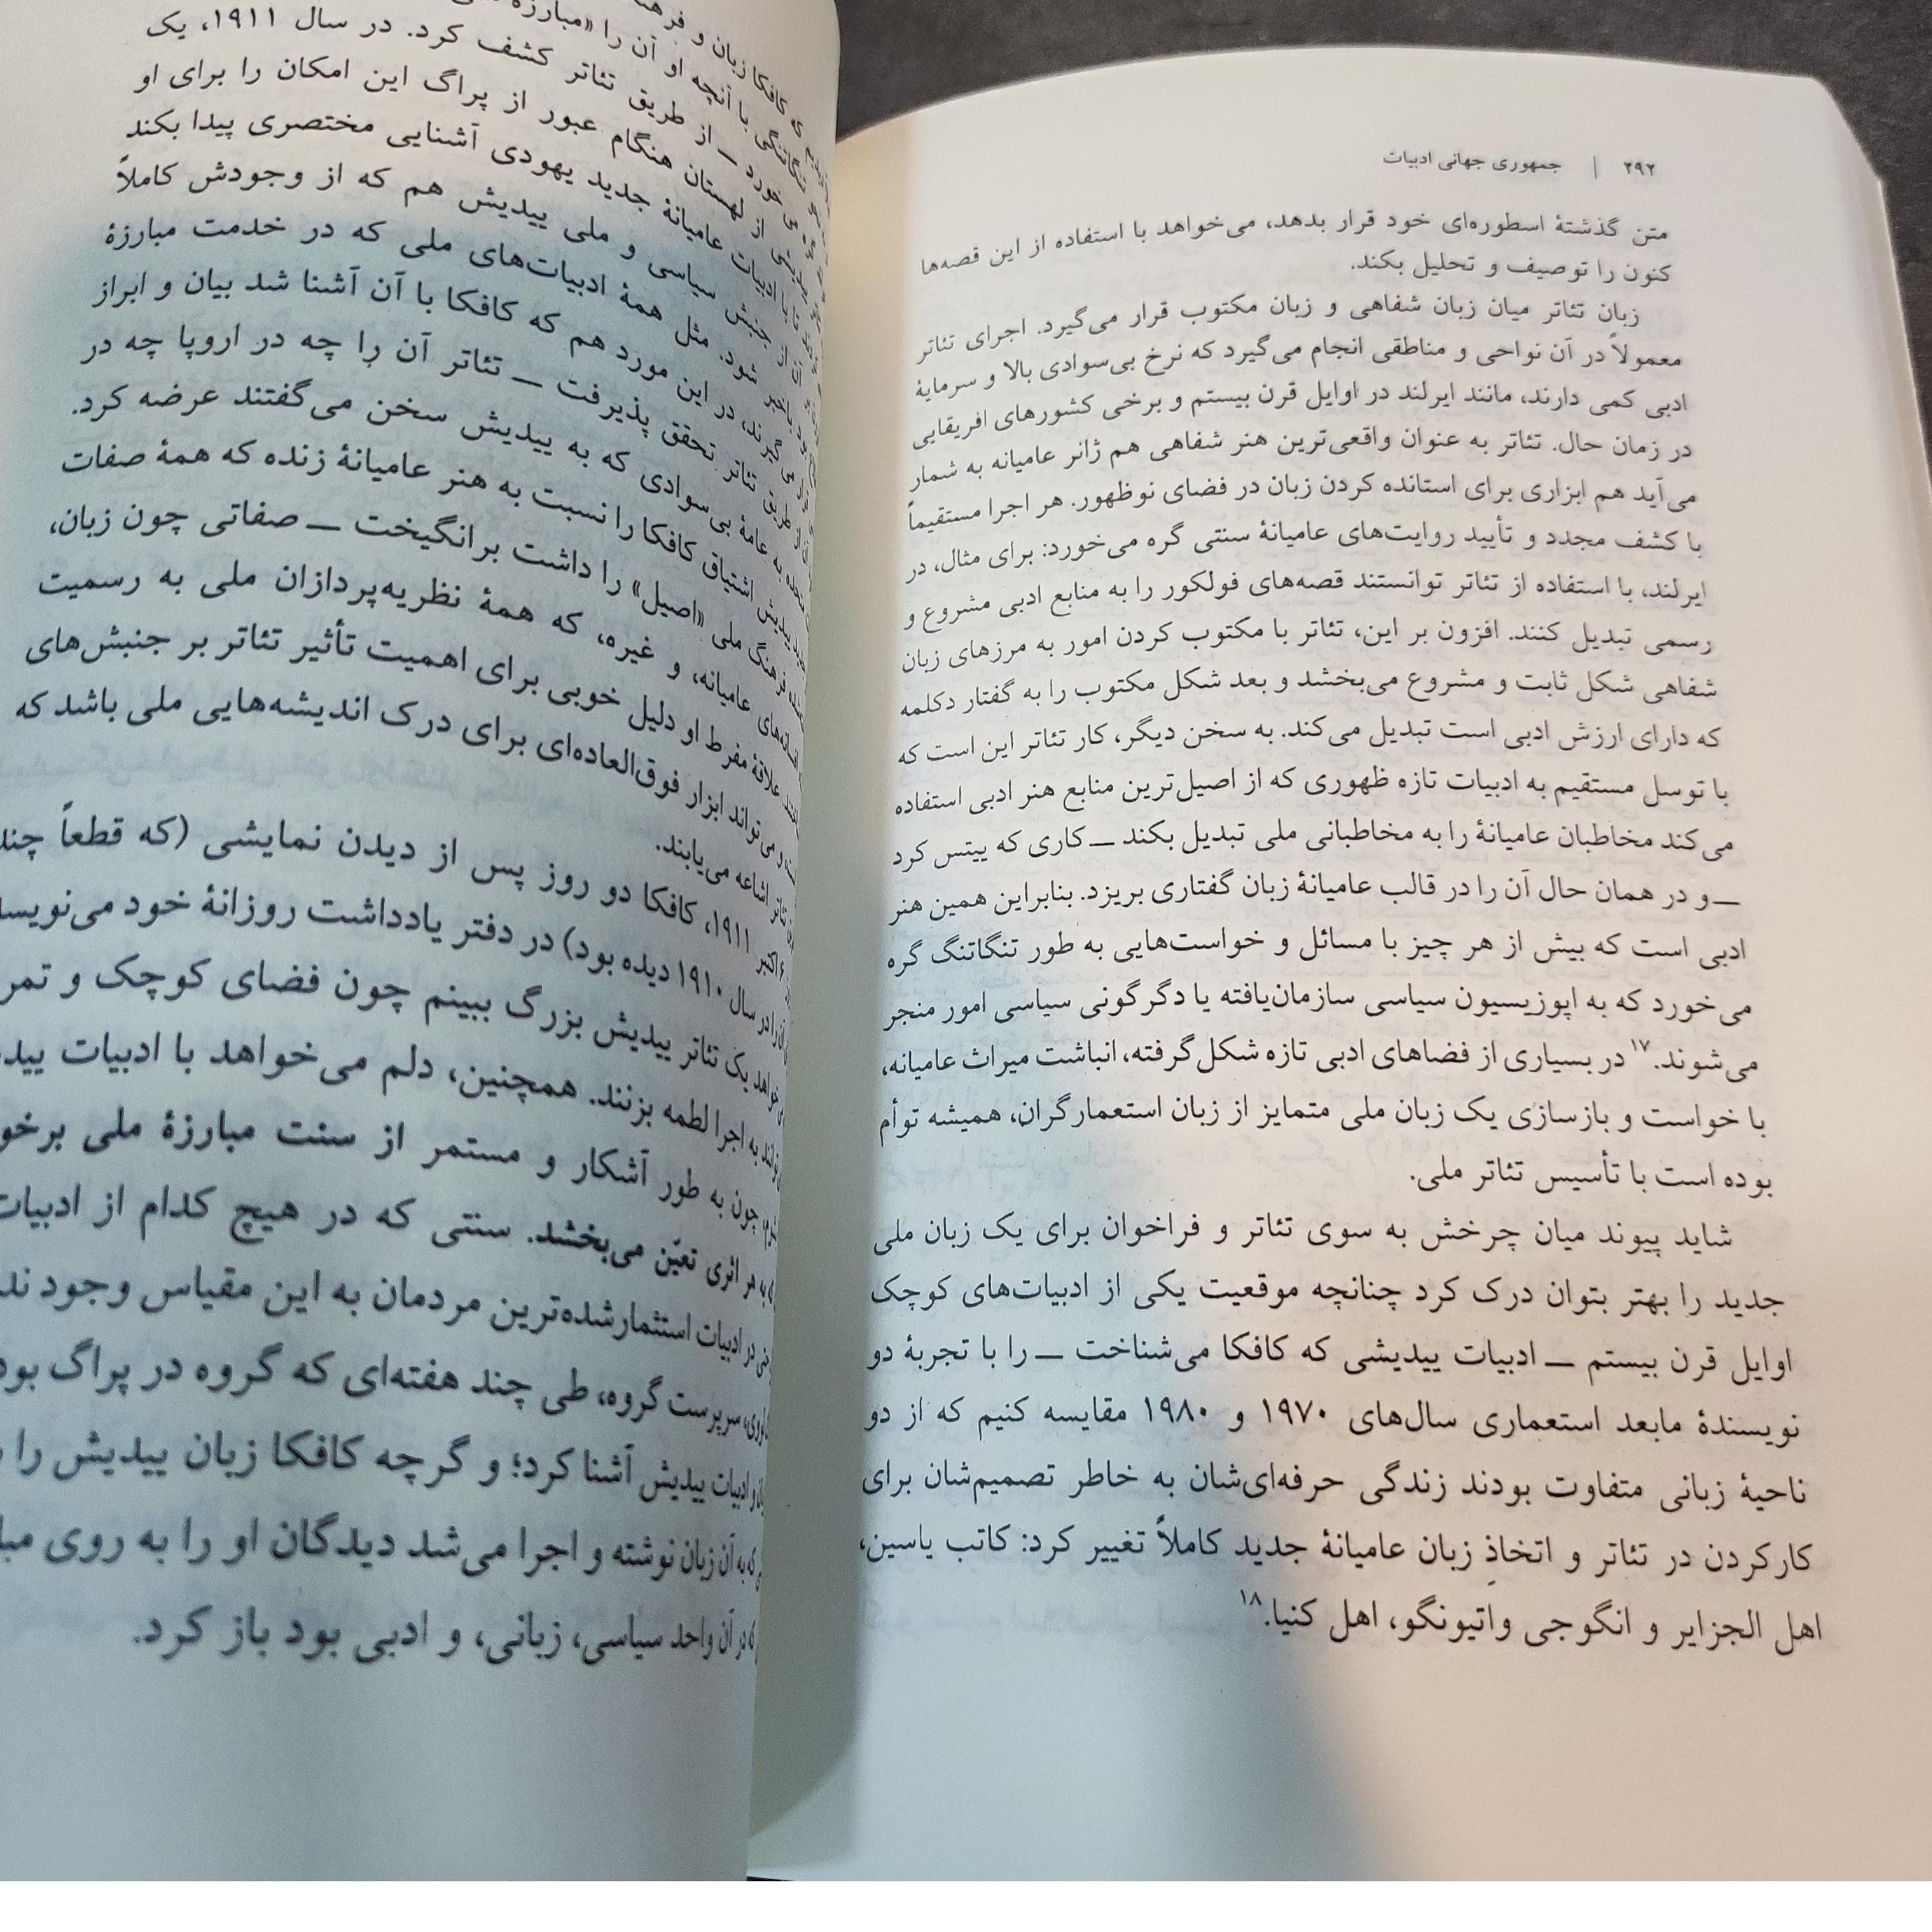 ۲۹۲ | جمهوری جهانی ادبیات
متن گذشتهٔ اسطوره‌ای خود قرار بدهد، می‌خواهد با استفاده از این قصه‌ها
کنون را توصیف و تحلیل بکند.
زبان تئاتر میان زبان شفاهی و زبان مکتوب قرار می‌گیرد. اجرای تئاتر
معمولاً در آن نواحی و مناطقی انجام می‌گیرد که نرخ بی‌سوادی بالا و سرمایهٔ
ادبی کمی دارند، مانند ایرلند در اوایل قرن بیستم و برخی کشورهای افریقایی
در زمان حال. تئاتر به عنوان واقعی‌ترین هنر شفاهی هم ژانر عامیانه به شمار
می‌آید هم ابزاری برای استانده کردن زبان در فضای نوظهور. هر اجرا مستقیماً
با کشف مجدد و تأیید روایت‌های عامیانهٔ سنتی گره می‌خورد: برای مثال، در
ایرلند، با استفاده از تئاتر توانستند قصه‌های فولکور را به منابع ادبی مشروع و
رسمی تبدیل کنند. افزون بر این، تئاتر با مکتوب کردن امور به مرزهای زبان
شفاهی شکل ثابت و مشروع می‌بخشد و بعد شکل مکتوب را به گفتار دکلمه
که دارای ارزش ادبی است تبدیل می‌کند. به سخن دیگر، کار تئاتر این است که
با توسل مستقیم به ادبیات تازه ظهوری که از اصیل‌ترین منابع هنر ادبی استفاده
می‌کند مخاطبان عامیانهٔ را به مخاطبانی ملی تبدیل بکند ــ کاری که ییتس کرد
ــ و در همان حال آن را در قالب عامیانهٔ زبان گفتاری بریزد. بنابراین همین هنر
ادبی است که بیش از هر چیز با مسائل و خواست‌هایی به طور تنگاتنگ گره
می‌خورد که به اپوزیسیون سیاسی سازمان‌یافته یا دگرگونی سیاسی امور منجر
می‌شوند.۱۷ در بسیاری از فضاهای ادبی تازه شکل‌گرفته، انباشت میراث عامیانه،
با خواست و بازسازی یک زبان ملی متمایز از زبان استعمارگران، همیشه توأم
بوده است با تأسیس تئاتر ملی.
شاید پیوند میان چرخش به سوی تئاتر و فراخوان برای یک زبان ملی
جدید را بهتر بتوان درک کرد چنانچه موقعیت یکی از ادبیات‌های کوچک
اوایل قرن بیستم ــ ادبیات ییدیشی که کافکا می‌شناخت ــ را با تجربهٔ دو
نویسندهٔ مابعد استعماری سال‌های ۱۹۷۰ و ۱۹۸۰ مقایسه کنیم که از دو
ناحیهٔ زبانی متفاوت بودند زندگی حرفه‌ای‌شان به خاطر تصمیم‌شان برای
کارکردن در تئاتر و اتخاذِ زبان عامیانهٔ جدید کاملاً تغییر کرد: کاتب یاسین،
اهل الجزایر و انگوجی واتیونگو، اهل کنیا.۱۸
که کافکا زبان و
تنگاتنگی با آنچه او آن را «مبارزه
می‌خورد ــ از طریق تئاتر کشف کرد. در سال ۱۹۱۱، یک
از لهستان هنگام عبور از پراگ این امکان را برای او
تا با ادبیات عامیانهٔ جدید یهودی آشنایی مختصری پیدا بکند
از جنبش سیاسی و ملی ییدیش هم که از وجودش کاملاً
باخبر شود. مثل همهٔ ادبیات‌های ملی که در خدمت مبارزهٔ
می‌گیرند، در این مورد هم که کافکا با آن آشنا شد بیان و ابراز
طریق تئاتر تحقق پذیرفت ــ تئاتر آن را چه در اروپا چه در
به عامهٔ بی‌سوادی که به ییدیش سخن می‌گفتند عرضه کرد.
ییدیش اشتیاق کافکا را نسبت به هنر عامیانهٔ زنده که همهٔ صفات
فرهنگ ملی «اصیل» را داشت برانگیخت ــ صفاتی چون زبان،
عامیانه، و غیره، که همهٔ نظریه‌پردازان ملی به رسمیت
علاقهٔ مفرط او دلیل خوبی برای اهمیت تأثیر تئاتر بر جنبش‌های
و می‌تواند ابزار فوق‌العاده‌ای برای درک اندیشه‌هایی ملی باشد که
تئاتر اشاعه می‌یابند.
۶ اکتبر ۱۹۱۱، کافکا دو روز پس از دیدن نمایشی (که قطعاً
در سال ۱۹۱۰ دیده بود) در دفتر یادداشت روزانهٔ خود
یک تئاتر ییدیش بزرگ ببینم چون فضای کوچک و
به اجرا لطمه بزنند. همچنین، دلم می‌خواهد با ادبیات
چون به طور آشکار و مستمر از سنت مبارزهٔ ملی
به هر اثری تعیّن می‌بخشد. سنتی که در هیچ کدام از
در ادبیات استثمارشده‌ترین مردمان به این مقیاس وجود
سرپرست گروه، طی چند هفته‌ای که گروه در پراگ
و ادبیات ییدیش آشنا کرد؛ و گرچه کافکا زبان ییدیش را
که به آن زبان نوشته و اجرا می‌شد دیدگان او را به روی
که در آن واحد سیاسی، زبانی، و ادبی بود باز کرد.